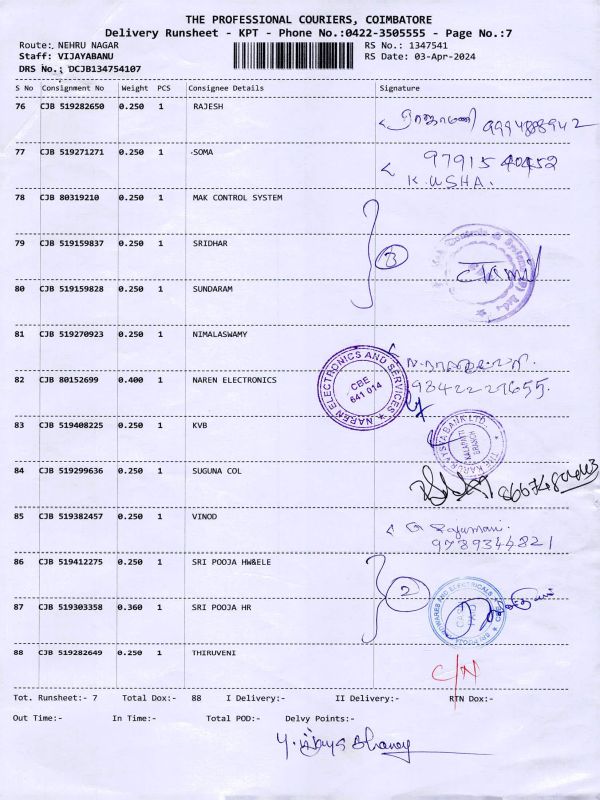 THE PROFESSIONAL COURIERS, COIMBATORE
Delivery Runsheet - KPT - Phone No.:0422-3505555 - Page No.:7
Route: NEHRU NAGAR RS No.: 1347541
Staff: VIJAYABANU RS Date: 03-Apr-2024
DRS No.: DCJB134754107
S No Consignment No Weight PCS Consignee Details Signature
76 CJB 519282650 0.250 1 RAJESH
9994888942
77 CJB 519271271 0.250 1 SOMA
K. USHA.
78 CJB 80319210 0.250 1 MAK CONTROL SYSTEM
79 CJB 519159837 0.250 1 SRIDHAR
3
80 CJB 519159828 0.250 1 SUNDARAM
81 CJB 519270923 0.250 1 NIMALASWAMY
82 CJB 80152699 0.400 1 NAREN ELECTRONICS
NAREN ELECTRONICS AND SERVICES
CBE
641 014
9842227655.
83 CJB 519408225 0.250 1 KVB
84 CJB 519299636 0.250 1 SUGUNA COL
85 CJB 519382457 0.250 1 VINOD
Rajamani.
9789344821
86 CJB 519412275 0.250 1 SRI POOJA HW&ELE
2
87 CJB 519303358 0.360 1 SRI POOJA HR
88 CJB 519282649 0.250 1 THIRUVENI
C/N
Tot. Runsheet:- 7 Total Dox:- 88 I Delivery:- II Delivery:- RTN Dox:-
Out Time:- In Time:- Total POD:- Delvy Points:-